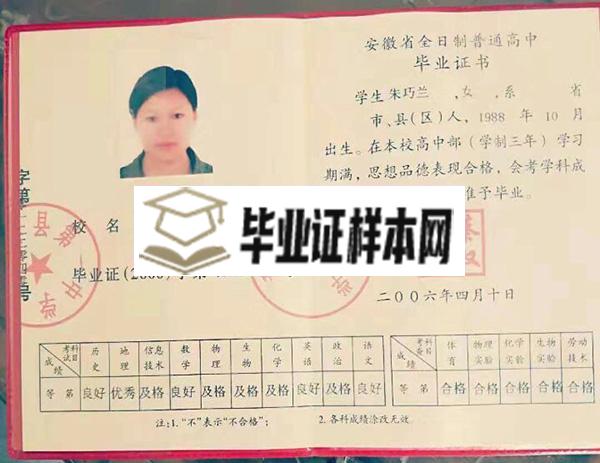 安徽省全日制普通高中
毕业证书
学生朱巧兰 ,女,系 省
市、县(区)人,1988 年 10 月
出生。在本校高中部(学制三年)学习
期满,思想品德表现合格,会考学科成
准予毕业。
二〇〇六年四月十日
字第
号
县第一中学
校 名
毕业证样本网
毕业证(2006)字第
考试科目 历史 地理 信息技术 数学 物理 生物 化学 英语 政治 语文
成绩
等 第 良好 优秀 及格 良好 及格 及格 及格 良好 及格 良好
考查科目 体育 物理实验 化学实验 生物实验 劳动技术
成绩
等 第 合格 合格 合格 合格 合格
注:1.“不”表示“不合格”; 2.各科成绩涂改无效。